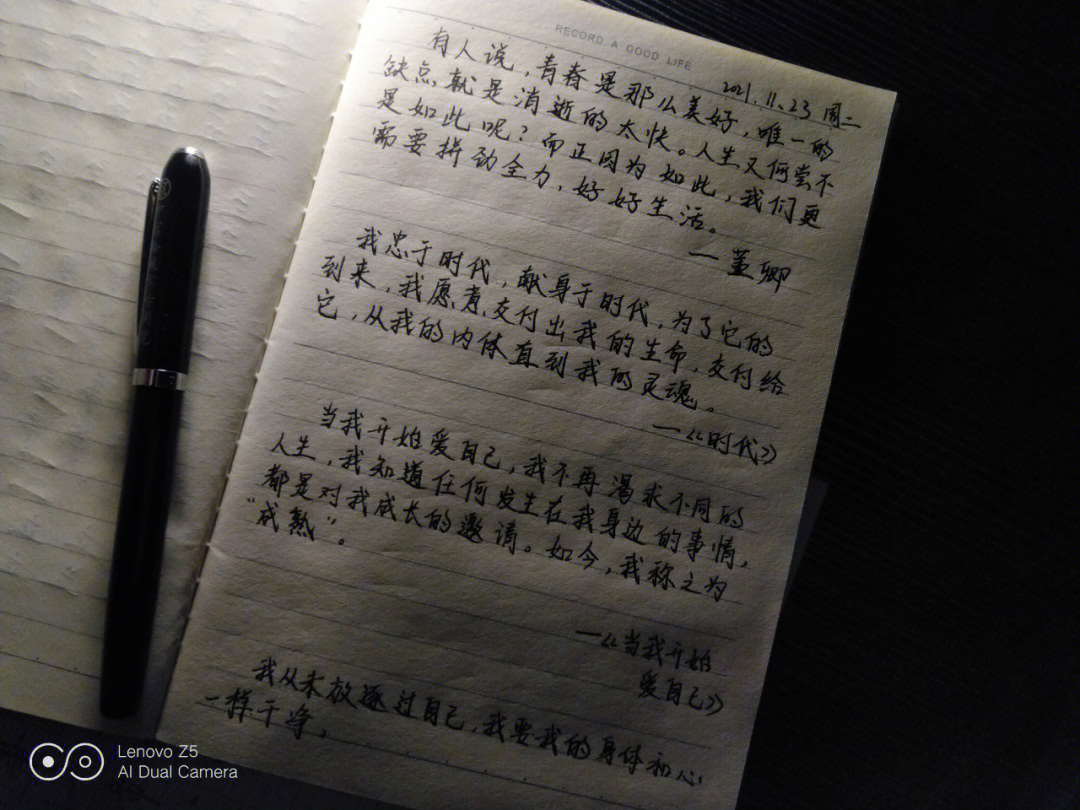 RECORD A GOOD LIFE
2021.11.23 周二
有人说，青春是那么美好，唯一的
缺点就是消逝的太快。人生又何尝不
是如此呢？而正因为如此，我们更
需要拼动全力，好好生活。
— 董卿
我忠于时代，献身于时代，为了它的
到来，我愿意交付出我的生命，交付给
它，从我的肉体直到我的灵魂。
—《时代》
当我开始爱自己，我不再渴求不同的
人生，我知道任何发生在我身边的事情，
都是对我成长的邀请。如今，我称之为
“成熟”。
—《当我开始
爱自己》
我从未放逐过自己，我要我的身体和心
一样干净，
Lenovo Z5
AI Dual Camera